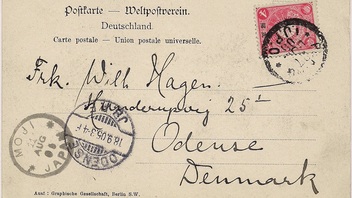 Postkarte — Weltpostverein.
Deutschland.
Carte postale — Union postale universelle.
Frk. Wilh Hagen.
25
Odense
Denmark
MOJI
AUG
JAPAN
ODENSE
18.9.05.3-4 E
Aust: Graphische Gesellschaft, Berlin S.W.